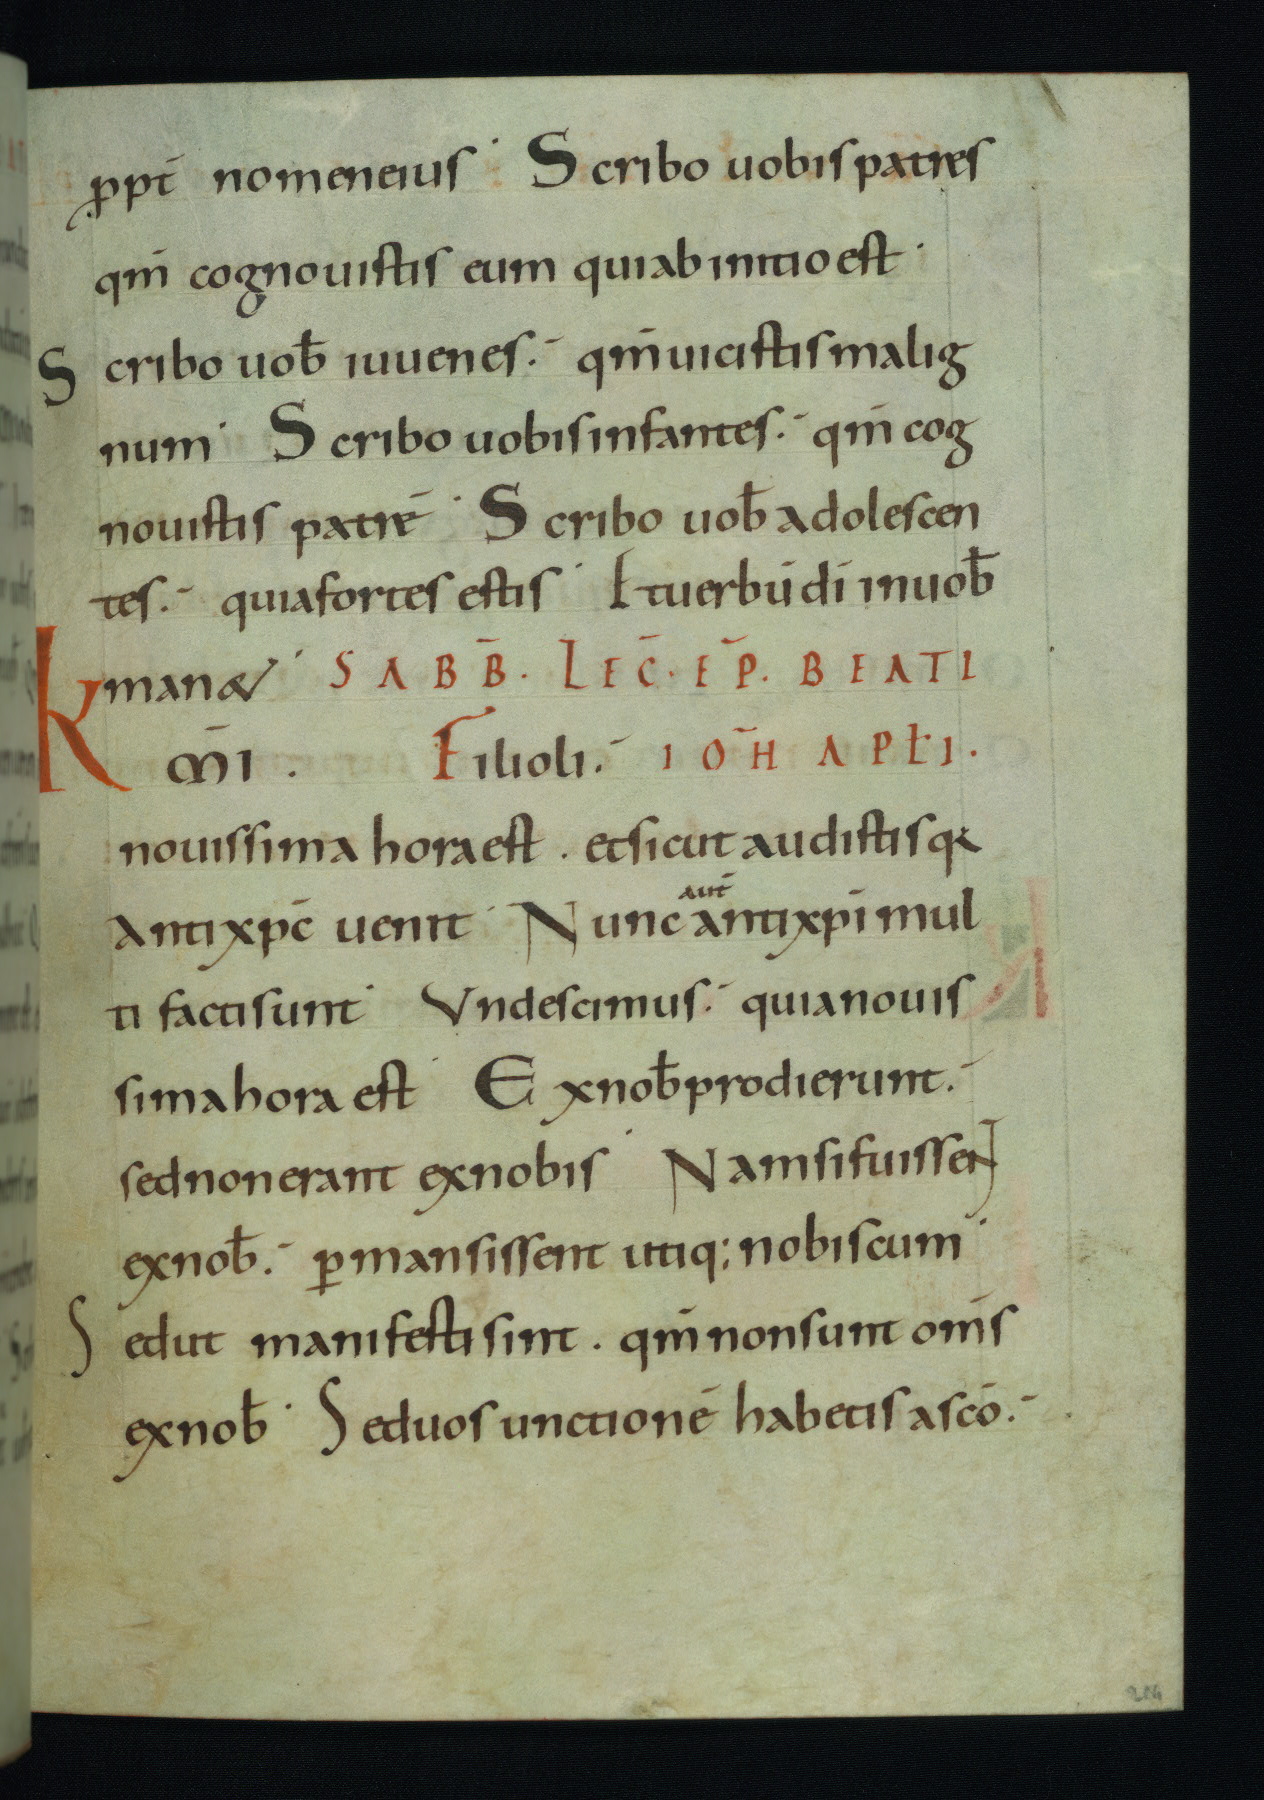 ꝓpt̄ nomen eius · Scribo uobis patres
qm̄ cognouistis eum qui ab initio est ·
Scribo uob̄ iuuenes. qm̄ uicistis malig
num · Scribo uobis infantes. qm̄ cog
nouistis patrē · Scribo uob̄ adolescen
tes. quia fortes estis · Et uerbū dī in uob̄
man& · SABB̄. LEC̄. EP̄. BEATI
K̄MI . Filioli. IOH̄ APƚI.
nouissima hora est . et sicut audistis qꝛ
antixpc̄ uenit · Nunc aut̄ antixpī mul
ti facti sunt · Unde scimus. quia nouis
sima hora est · Ex nob̄ prodierunt.
sed non erant ex nobis · Nam si fuissent
ex nob̄. ꝑmansissent utiq; nobiscum ·
Sed ut manifesti sint . qm̄ non sunt om̄s
ex nob̄ · Sed uos unctionē habetis a scō.
204